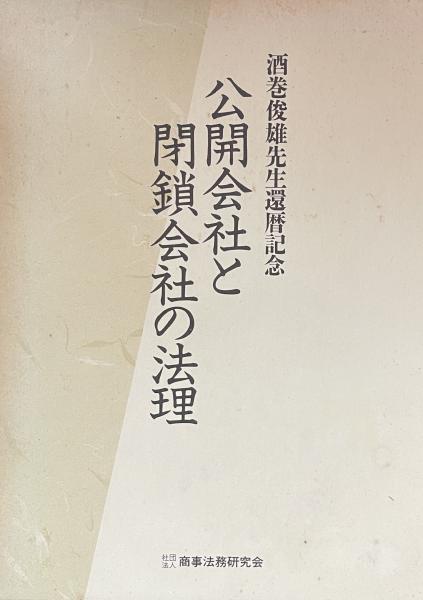 酒巻俊雄先生還暦記念
公開会社と
閉鎖会社の法理
社団法人 商事法務研究会